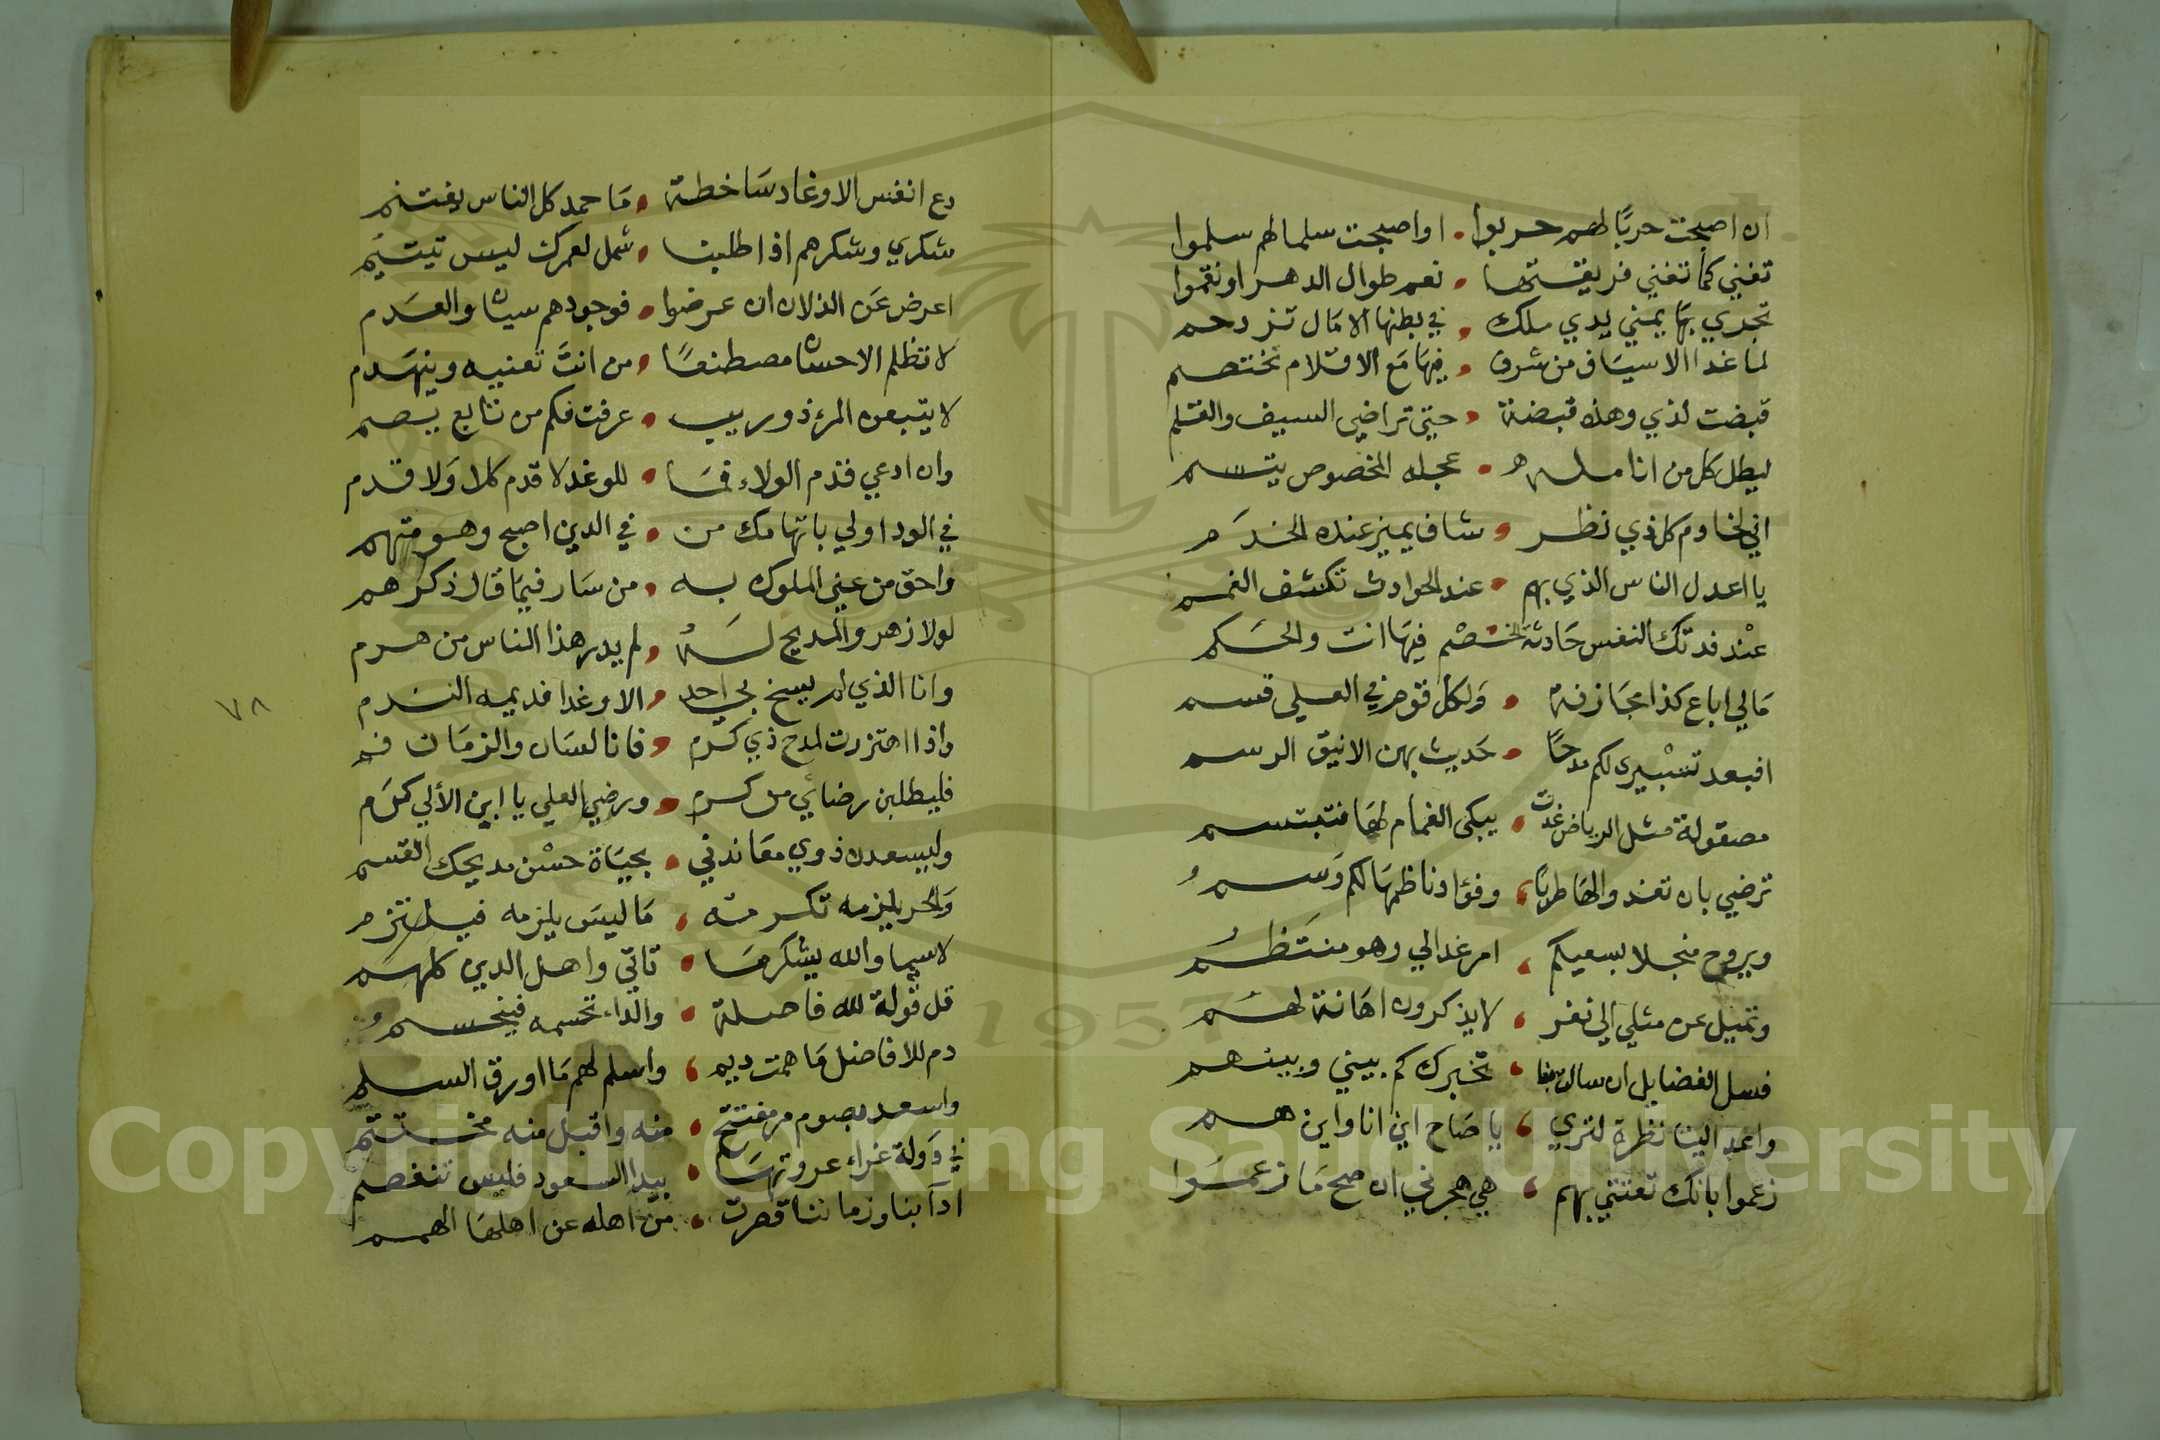 ان اصبحت حربا لهم حربوا . او اصبحت سلما لهم سلموا
تغني كما تغني فريقتها . نعم طوال الدهر او نقموا
تجدي بها يمني يدي ملك . في بطنها الامال تزدحم
لما غدا الاسياف من شرف . فيها مع الاقلام تختصم
قبضت لذي وهذه قبضة . حتي تراضي السيف والقلم
ليطل كل من انامله . عجله المخصوص يتسم
اني لخاوم كل ذي نظر . شاف يميز عنده الخدم
يا اعدل الناس الذي بهم . عند الحوادث تكشف الغمم
عند فدتك النفس حادثة خصم فيها انت والحكم
مالي اباع كذا مجازفة . ولكل قوم في العلي قسم
افبعد تسييري لكم مدحا . حديث بهن الانيق الرسم
مصقولة مثل الرياض غدت . يبكي الغمام لها فتبتسم
ترضي بان تغدوا لها طربا . وفؤاد ناظمها لكم وسم
ويروح منجلا بسعيكم . امر غدا لي وهو منتظم
وتميل عن مثلي الي نفر . لا يذكرون اهانة لهم
فسل الفضايل ان سالت بنا . تخبرك كم بيني وبينهم
واعد الينا نظرة لتري . يا صاح اين انا واين هم
زعموا بانك تعتني بهم . هي هجرتي ان صح ما زعموا
دع انفس الاوغاد ساخطة . ما حمد كل الناس يغتنم
شكري وشكرهم اذا طلبنا . شمل لعمرك ليس تيتيم
اعرض عن الذلان ان عرضوا . فوجودهم سيان والعدم
لا تظلم الاحسان مصطنعا . من انت تعنيه وينهدم
لا يتبعن المرء ذو ريب . عرفت فكم من تابع يصم
وان ادعي فذم الولاء فما . للوغد لا قدم كلا ولا قدم
في الود اولي باتهامك من . في الدين اصبح وهو متهم
واحق من عني الملوك به . من سار فيما قال ذكرهم
لولا زهر والمديح له . لم يدر هذا الناس من هرم
وانا الذي لم يسخ بي احد . الا وغدا فديمه الندم
واذا اهتزرت لمدح ذي كرم . فانا لسان والزمان فم
فليطلبن رضائي من كرم . ورضي العلي يا ابن الألي كرم
وليسعدن ذوي معاندتي . بحياة حسن مديحك القسم
والحر يلزمه تكرمته . ما ليس يلزمه فيلتزم
لا سيما والله يشكرها . تاتي واهل الدين كلهم
قل قولة لله فاصلة . والداء تحسمه فينحسم
دم للافاضل ما همت ديم . واسلم لهم ما اورق السلم
واسعد بصوم مر مفتتح . منه واقبل منه مختتم
في دولة غراء عروتها . بيد السعود فليس تنفصم
ادآبنا وزماننا قصرت . من اهله عن اهلها الهمم
٧٨
Copyright © King Saud University
1957